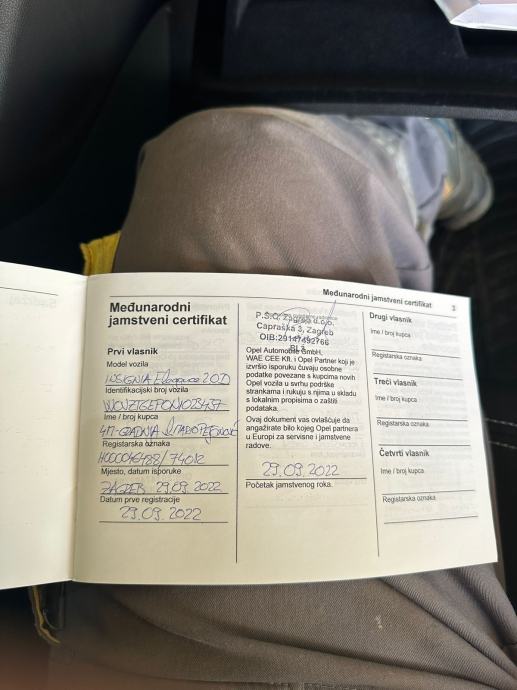 Međunarodni jamstveni certifikat
3
Međunarodni
jamstveni certifikat
Prvi vlasnik
Model vozila
INSIGNIA Elegance 2.0D
Identifikacijski broj vozila
Ime / broj kupca
Registarska oznaka
Mjesto, datum isporuke
ZAGREB 29.09.2022
Datum prve registracije
29.09.2022
P.S.C. Zagreb d.o.o.
Capraška 3, Zagreb
OIB:29147492766
Opel Automobile GmbH,
WAE CEE Kft. i Opel Partner koji je
izvršio isporuku čuvaju osobne
podatke povezane s kupcima novih
Opel vozila u svrhu podrške
strankama i rukuju s njima u skladu
s lokalnim propisima o zaštiti
podataka.
Ovaj dokument vas ovlašćuje da
angažirate bilo kojeg Opel partnera
u Europi za servisne i jamstvene
radove.
29.09.2022
Početak jamstvenog roka.
Drugi vlasnik
Ime / broj kupca
Registarska oznaka
Treći vlasnik
Ime / broj kupca
Registarska oznaka
Četvrti vlasnik
Ime / broj kupca
Registarska oznaka